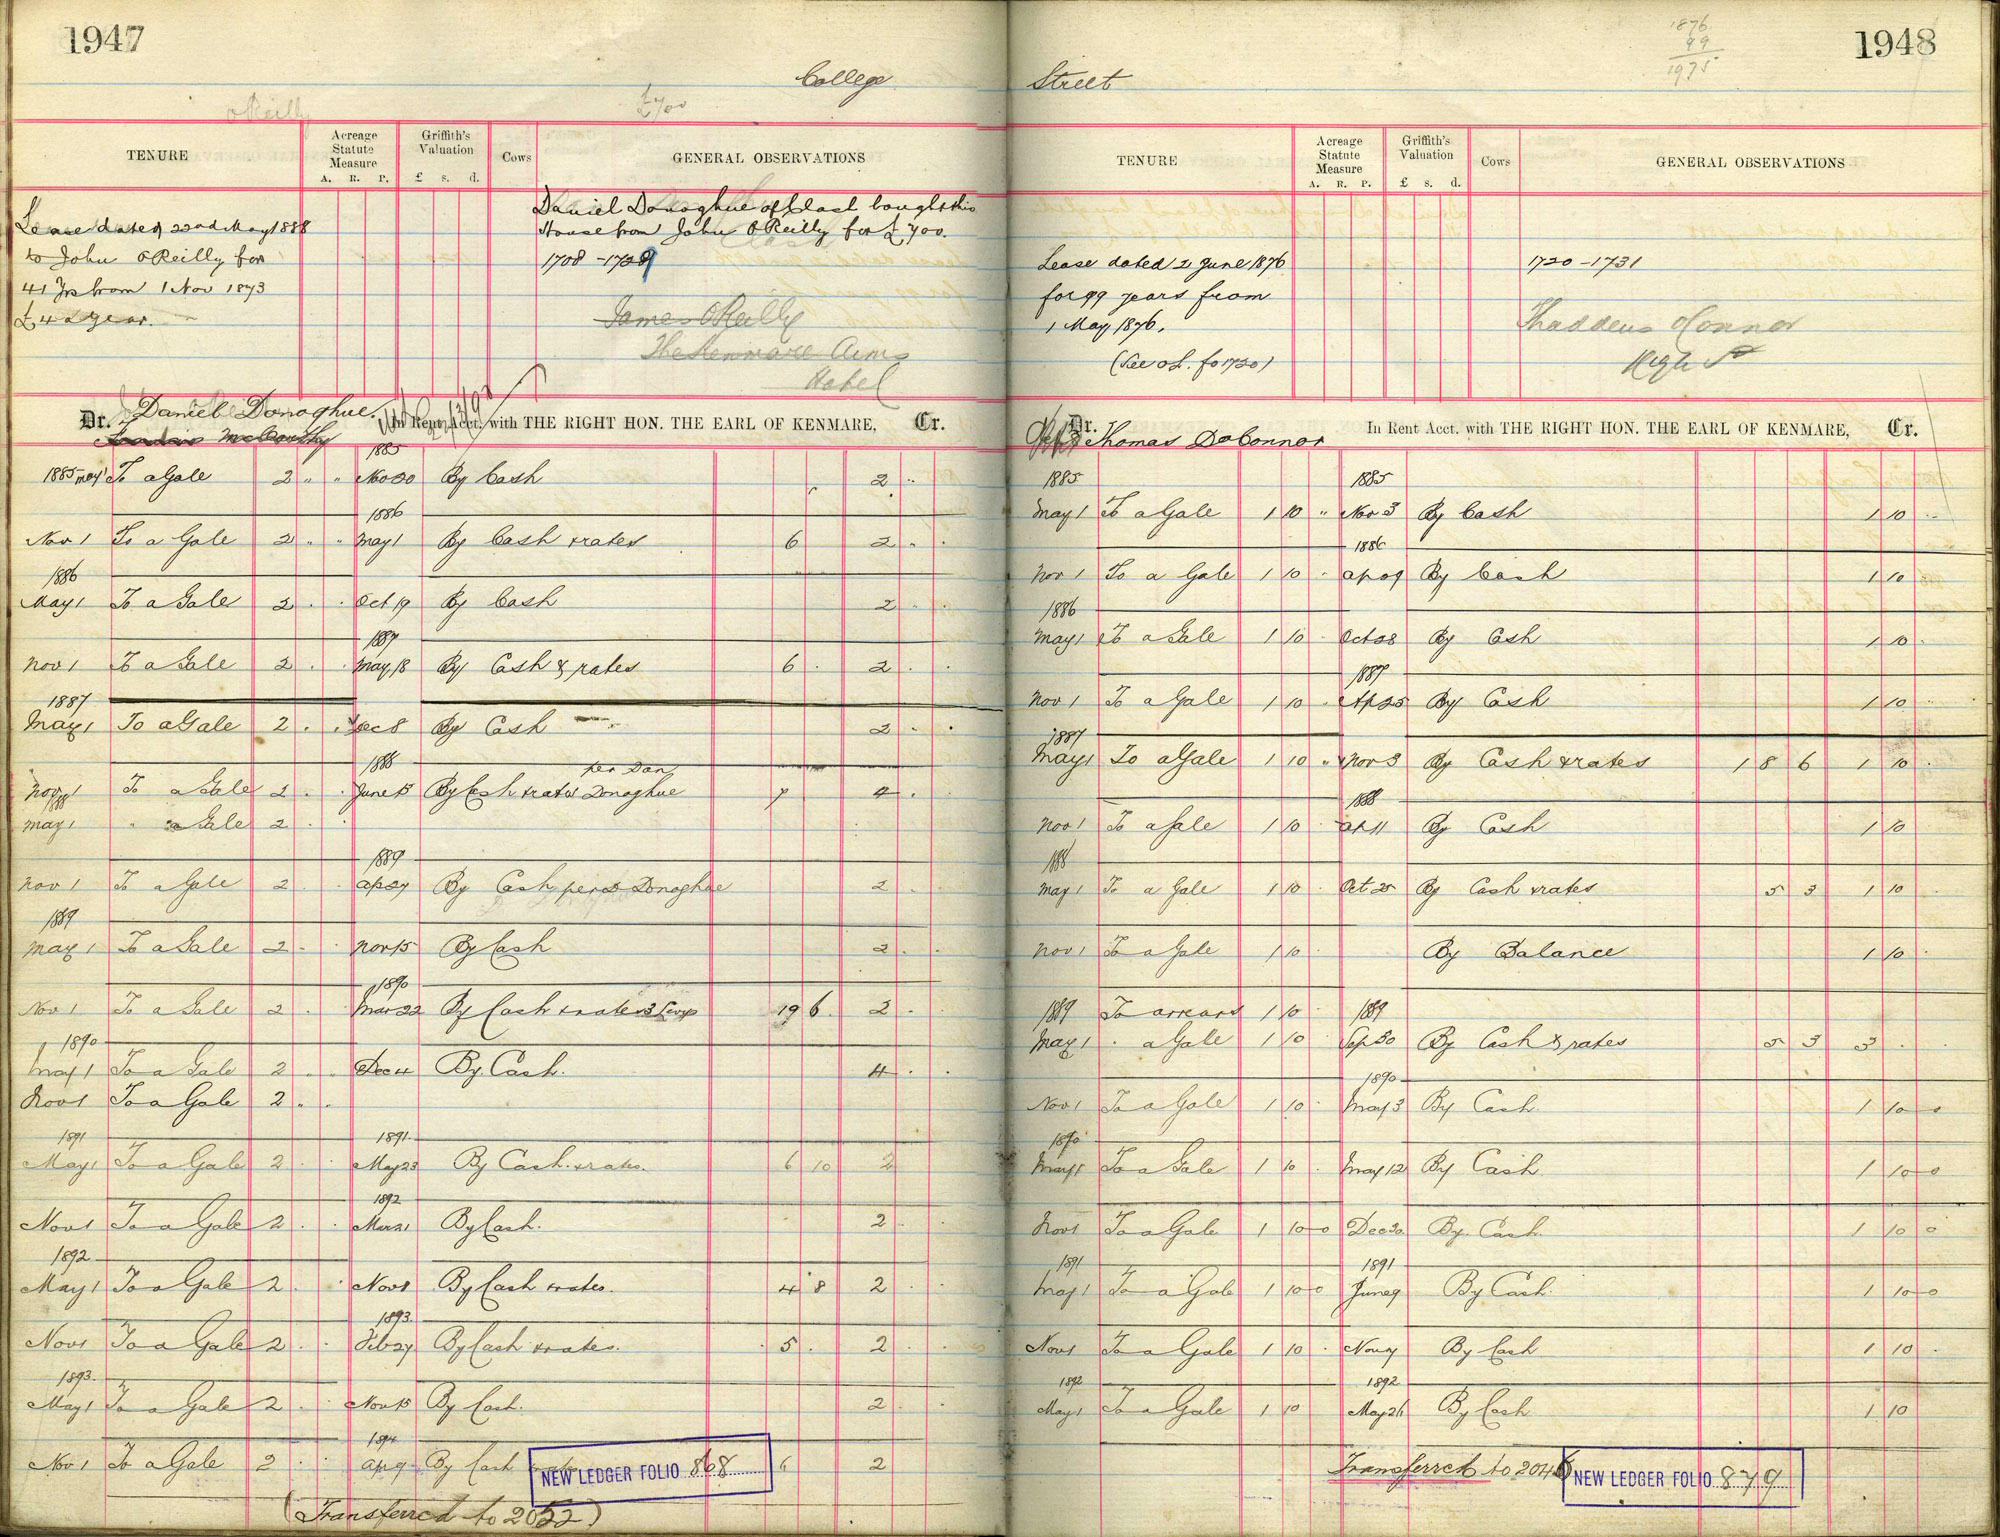 1947
College
O'Reilly
£700
TENURE
Acreage Statute Measure
A. R. P.
Griffith's Valuation
£ s. d.
Cows
GENERAL OBSERVATIONS
Lease dated 22nd May 1888
to John O'Reilly for
41 Yrs from 1 Nov 1873
£4 a year.
Daniel Donoghue of Clash bought this
House from John O'Reilly for £700.
1708 - 1729
James O'Reilly
The Kenmare Arms
Hotel
Dr. Daniel Donoghue. In Rent Acct. with THE RIGHT HON. THE EARL OF KENMARE, Cr.
McCarthy
1885
1885 May 1 To a Gale 2 " " Nov 20 By Cash 2 "
1886
Nov 1 To a Gale 2 " " May 1 By Cash & rates 6 2 " "
1886
May 1 To a Gale 2 . . Oct 19 By Cash 2 . .
1887
Nov 1 To a Gale 2 . . May 18 By Cash & rates 6 . 2 . .
1887
May 1 To a Gale 2 . . Dec 8 By Cash 2 . .
1888 per Dan
Nov 1 To a Gale 2 . June 15 By Cash & rates Donoghue 7 4 .
1888
May 1 " a Gale 2 .
1889
Nov 1 To a Gale 2 . Ap 27 By Cash per D Donoghue 2 .
1889
May 1 To a Gale 2 . . Nov 15 By Cash 2 . .
1890
Nov 1 To a Gale 2 . Mar 22 By Cash & rates 19 6 2 . .
1890
May 1 To a Gale 2 . . Dec 4 By Cash. 4 . .
Nov 1 To a Gale 2 . .
1891 1891
May 1 To a Gale 2 . . May 23 By Cash & rates. 6 10 2
1892
Nov 1 To a Gale 2 . . Mar 21 By Cash. 2 . .
1892
May 1 To a Gale 2 . . Nov 8 By Cash & rates. 4 8 2 . .
1893
Nov 1 To a Gale 2 . . Feb 27 By Cash & rates. 5 . 2 . .
1893
May 1 To a Gale 2 . . Nov 15 By Cash. 2 . .
1894
Nov 1 To a Gale 2 . . Ap 9 By Cash 6 2
NEW LEDGER FOLIO 868
(Transferred to 2052)
1948
Street
1876
99
1975
TENURE
Acreage Statute Measure
A. R. P.
Griffith's Valuation
£ s. d.
Cows
GENERAL OBSERVATIONS
Lease dated 2 June 1876
for 99 years from
1 May 1876.
(See o L. fo 1720)
1720 - 1731
Thaddeus O'Connor
High St
Dr. Thomas D O'Connor In Rent Acct. with THE RIGHT HON. THE EARL OF KENMARE, Cr.
1885 1885
May 1 To a Gale 1 10 " Nov 3 By Cash 1 10 "
1886
Nov 1 To a Gale 1 10 . Ap 09 By Cash 1 10
1886
May 1 To a Gale 1 10 . Oct 28 By Cash 1 10 .
1887
Nov 1 To a Gale 1 10 . Ap 25 By Cash 1 10
1887
May 1 To a Gale 1 10 " Nov 3 By Cash & rates 1 8 6 1 10 .
1888
Nov 1 To a Gale 1 10 . Ap 11 By Cash 1 10
1888
May 1 To a Gale 1 10 . Oct 25 By Cash & rates 5 3 1 10 .
Nov 1 To a Gale 1 10 . By Balance 1 10 .
1889 To arrears 1 10 . 1889
May 1 " a Gale 1 10 . Sep 30 By Cash & rates 5 3 3 . .
1890
Nov 1 To a Gale 1 10 . May 3 By Cash 1 10 0
1890
May 1 To a Gale 1 10 . May 12 By Cash 1 10 0
Nov 1 To a Gale 1 10 0 Dec 20 By Cash. 1 10 0
1891 1891
May 1 To a Gale 1 10 0 June 9 By Cash. 1 10 0
Nov 1 To a Gale 1 10 . Nov 9 By Cash 1 10 .
1892 1892
May 1 To a Gale 1 10 May 26 By Cash 1 10
Transferred to 2046
NEW LEDGER FOLIO 879